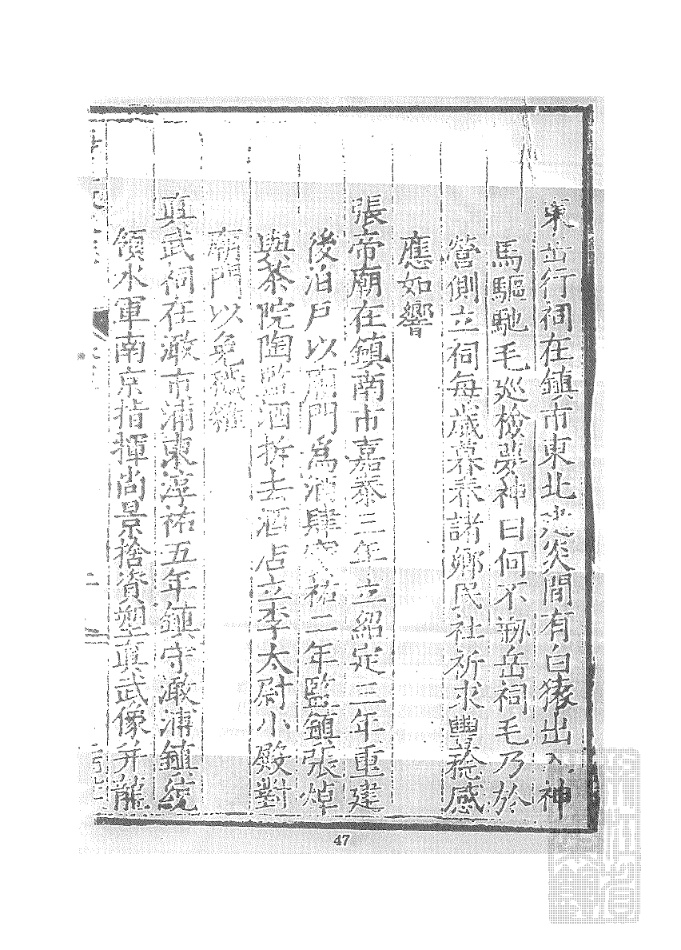 東岳行祠在鎮市東北建炎間有白猿出入神
馬驅馳毛巡檢夢神曰何不粉岳祠毛乃於
營側立祠每歲暮春諸鄉民社祈求豐稔感
應如響
張帝廟在鎮南市嘉泰三年立紹定三年重建
後泊戶以廟門爲酒肆寶祐二年監鎮張焯
與茶院陶監酒拆去酒店立李太尉小殿對
廟門以免穢雜
真武祠在澉市浦東淳祐五年鎮守澉浦鎮統
領水軍南京指揮尚景捨資塑真武像并龍
47